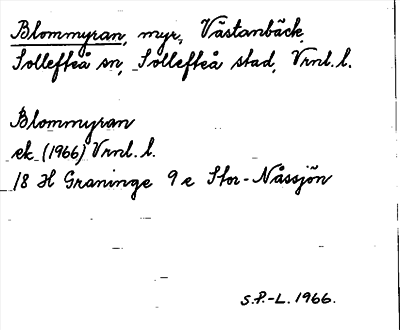 Blommyran, myr, Västanbäck,
Sollefteå sn, Sollefteå stad, Vrnl. l.
Blommyran
ek. (1966) Vrnl. l.
18 H Graninge 9 e Stor-Nässjön
S.P.-L. 1966.